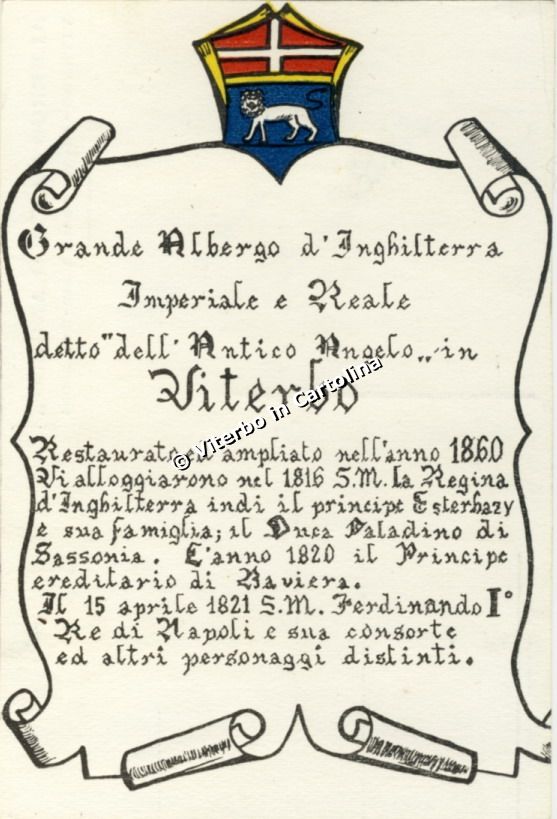 Grande Albergo d'Inghilterra
Imperiale e Reale
detto "dell' Antico Angelo„ in
Viterbo
© Viterbo in Cartolina
Restaurato ed ampliato nell'anno 1860
Vi alloggiarono nel 1816 S.M. la Regina
d'Inghilterra indi il principe Esterhazy
e sua famiglia; il Duca Paladino di
Sassonia. L'anno 1820 il Principe
ereditario di Baviera.
Il 15 aprile 1821 S.M. Ferdinando I°
Re di Napoli e sua consorte
ed altri personaggi distinti.